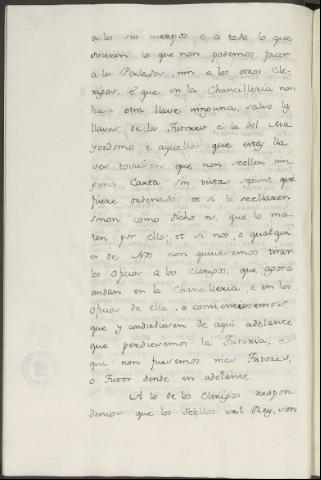 a los sin cuerpos e a todo lo que
ovieren lo que non podemos facer
a los Perlados, nin a los otros Cle-
rigos, e que en la Chancilleria non
haya otra llave ninguna, salvo las
llaves de los Tutores, e la del Ma
yordomo, e aquellos que estas lla
ves tovieren que non seellen nin
guna Carta sin vista segunt que
fuere ordenado, et si la seellaren
sinon como dicho es, que lo ma-
ten por ello; et si nos, o qualqui
er de Nos non quisieremos tirar
los oficios a los clerigos, que agora
andan en la Chancilleria, e en los
oficios de ella, o consintieremos,
que y andudieren de aqui adelante
que perdieremos la Tutoria, e
que non fuesemos mas Tutores,
o Tutor dende en adelante.
A lo de los Clerigos respon
demos que los Seellos del Rey, son